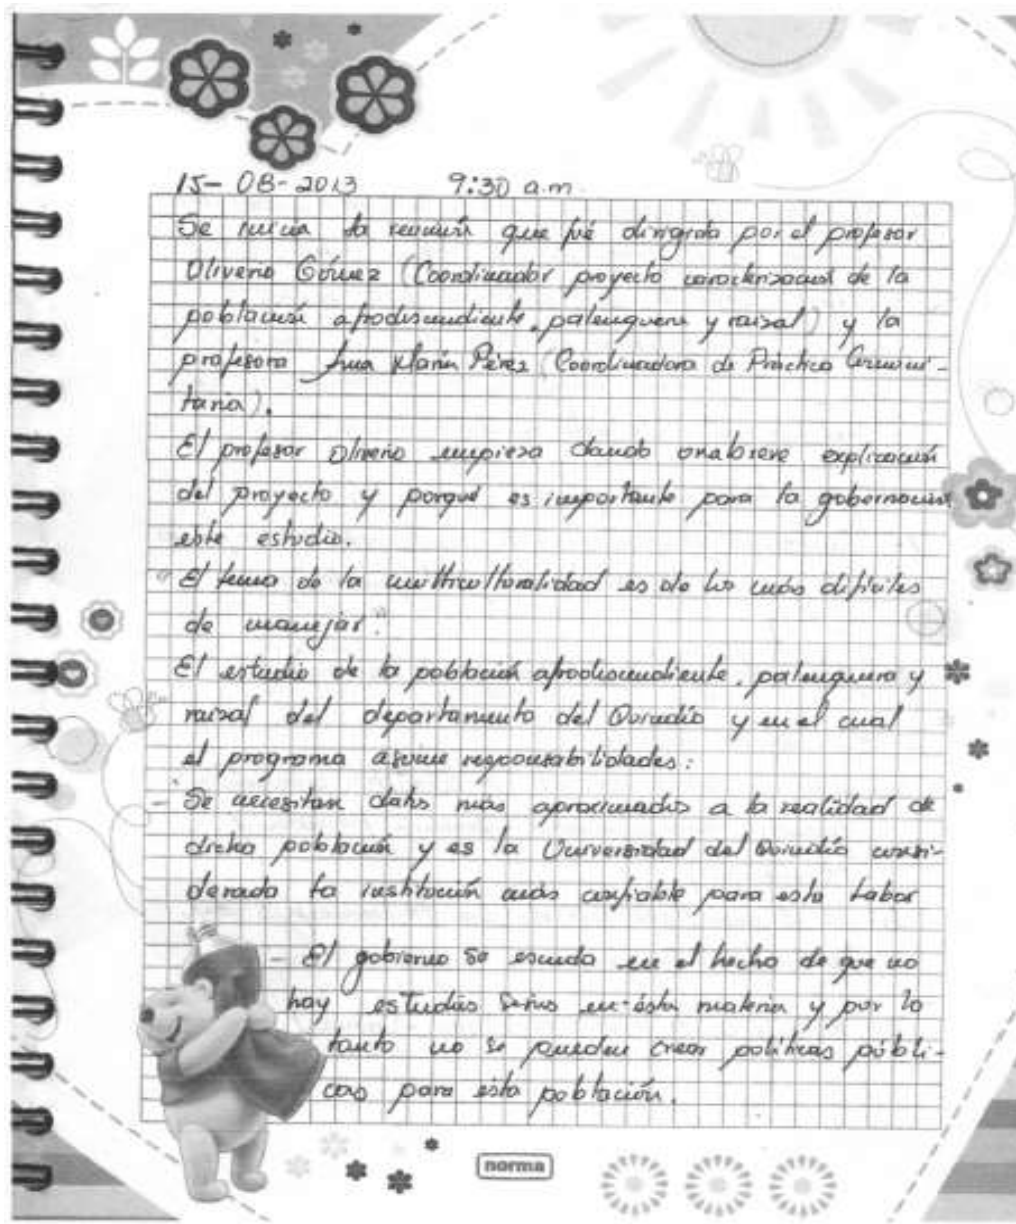 15-08-2013 9:30 a.m.
Se inicia la reunión que fué dirigida por el profesor
Oliverio Gómez (Coordinador proyecto caracterización de la
población afrodiscendiente, palenquera y raizal) y la
profesora Ana María Pérez (Coordinadora de Práctica Comuni-
taria).
El profesor Oliverio empieza dando una breve explicación
del proyecto y porqué es importante para la gobernación
este estudio.
"El tema de la multiculturalidad es de los más difíciles
de manejar".
El estudio de la población afrodiscendiente, palenquera y
raizal del departamento del Quindío y en el cual
el programa asume responsabilidades:
- Se necesitan datos más aproximados a la realidad de
dicha población y es la Universidad del Quindío consi-
derada la institución más confiable para esta labor
- El gobierno se escuda en el hecho de que no
hay estudios serios en ésta materia y por lo
tanto no se pueden crear políticas públi-
cas para esta población.
norma